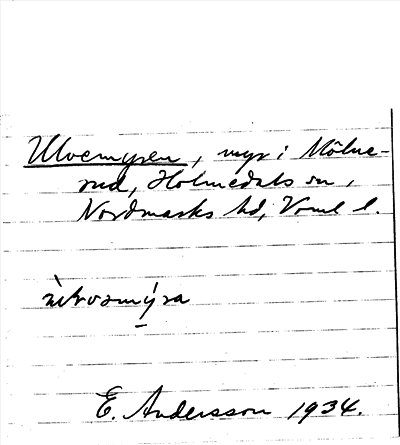 Ulvemyren, myr i Mölne-
rud, Holmedals sn,
Nordmarks hd, Vrml l.
E. Andersson 1934.